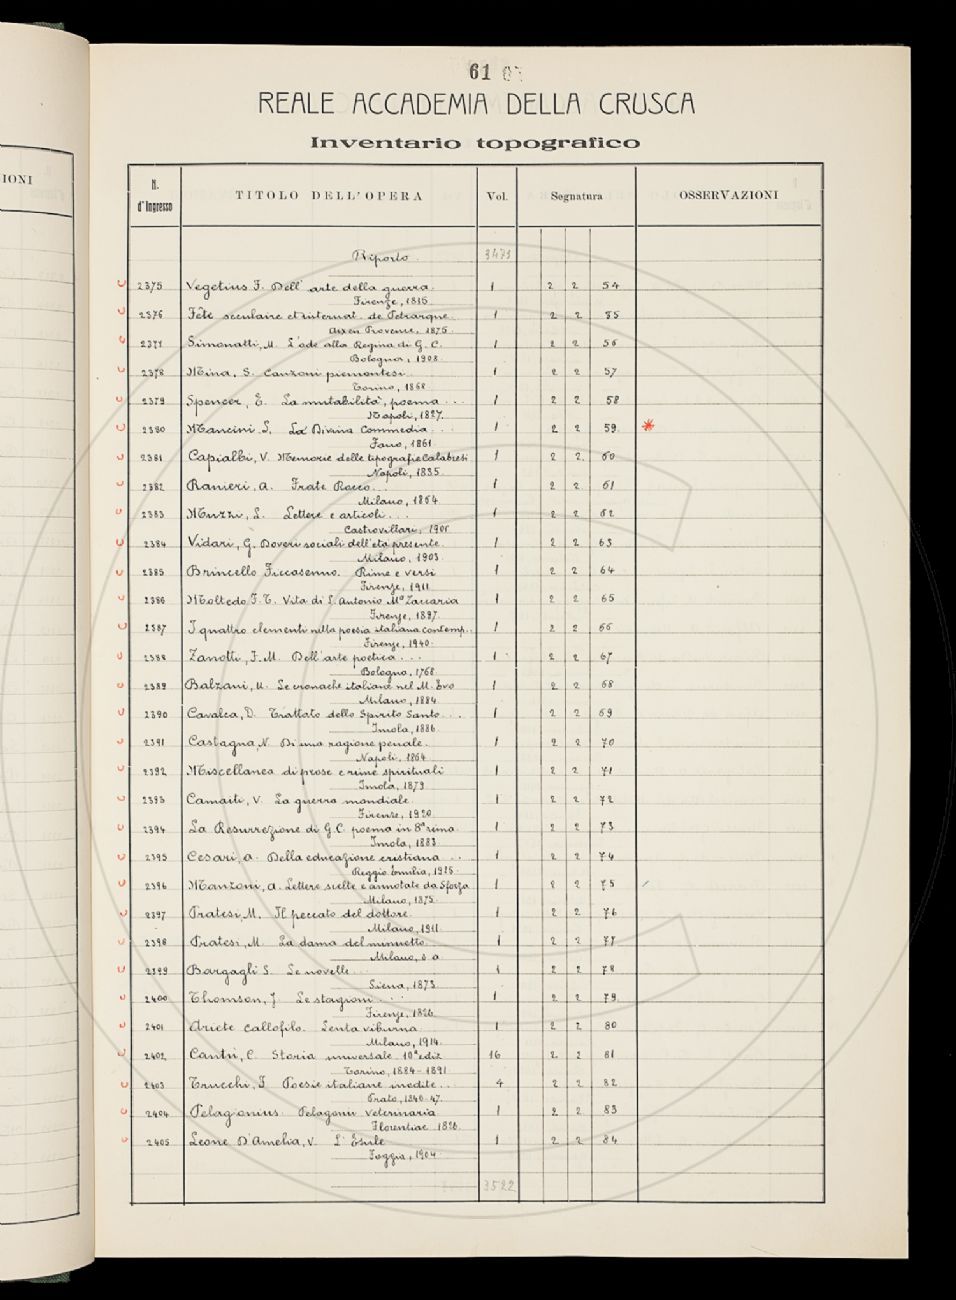 IONI
61
REALE ACCADEMIA DELLA CRUSCA
Inventario topografico
N. d'Ingresso TITOLO DELL'OPERA Vol. Segnatura OSSERVAZIONI
Riporto 3473
2375 Vegetius F. Dell' arte della guerra. 1 2 2 54
Firenze, 1815
2376 Fête seculaire et internat. de Petrarque. 1 2 2 55
Aix en Provence, 1875.
2377 Simonatti, M. L'ode alla Regina di G. C. 1 2 2 56
Bologna, 1908.
2378 Mina, S. Canzoni piemontesi 1 2 2 57
Torino, 1868
2379 Spencer, E. La mutabilità, poema ... 1 2 2 58
Napoli, 1827.
2380 Mancini L. La Divina Commedia ... 1 2 2 59 *
Fano, 1861.
2381 Capialbi, V. Memorie delle tipografie Calabresi 1 2 2 60
Napoli, 1835.
2382 Ranieri, A. Frate Rocco ... 1 2 2 61
Milano, 1864
2383 Muzzi, L. Lettere e articoli ... 1 2 2 62
Castrovillari,
2384 Vidari, G. Doveri sociali dell'età presente. 1 2 2 63
Milano, 1903.
2385 Brincello Ficcasenno. Rime e versi 1 2 2 64
Firenze, 1911
2386 Moltedo F. T. Vita di S. Antonio Mª Zaccaria 1 2 2 65
Firenze, 1897.
2387 I quattro elementi nella poesia italiana contemp.. 1 2 2 66
Firenze, 1940.
2388 Zanotti, F. M. Dell'arte poetica ... 1 2 2 67
Bologna, 1768
2389 Balzani, U. Le cronache italiane nel M. Evo 1 2 2 68
Milano, 1884.
2390 Cavalca, D. Trattato dello Spirito Santo ... 1 2 2 69
Imola, 1886.
2391 Castagna, N. Di una ragione penale. 1 2 2 70
Napoli, 1864
2392 Miscellanea di prose e rime spirituali 1 2 2 71
Imola, 1879
2393 Camaiti, V. La guerra mondiale. 1 2 2 72
Firenze, 1920.
2394 La Resurrezione di G. C. poema in 8ª rima. 1 2 2 73
Imola, 1883
2395 Cesari, A. Della educazione cristiana ... 1 2 2 74
Reggio Emilia, 1925.
2396 Manzoni, A. Lettere scelte e annotate da Sforza 1 2 2 75
Milano, 1875.
2397 Pratesi, M. Il peccato del dottore. 1 2 2 76
Milano, 1911.
2398 Pratesi, M. La dama del minuetto. 1 2 2 77
Milano, s. a.
2399 Bargagli S. Le novelle ... 1 2 2 78
Siena, 1873.
2400 Thomson, J. Le stagioni ... 1 2 2 79.
Firenze, 1826.
2401 Ariete callofilo. Lenta viburna 1 2 2 80
Milano, 1914.
2402 Cantù, C. Storia universale. 10ª ediz. 16 2 2 81
Torino, 1884-1891.
2403 Trucchi, F. Poesie italiane inedite .. 4 2 2 82
Prato, 1846-47.
2404 Pelagonius. Pelagonii Veterinaria 1 2 2 83
Florentiae 1826.
2405 Leone D'Amelia, V. L'Esule 1 2 2 84
Foggia, 1904.
3522